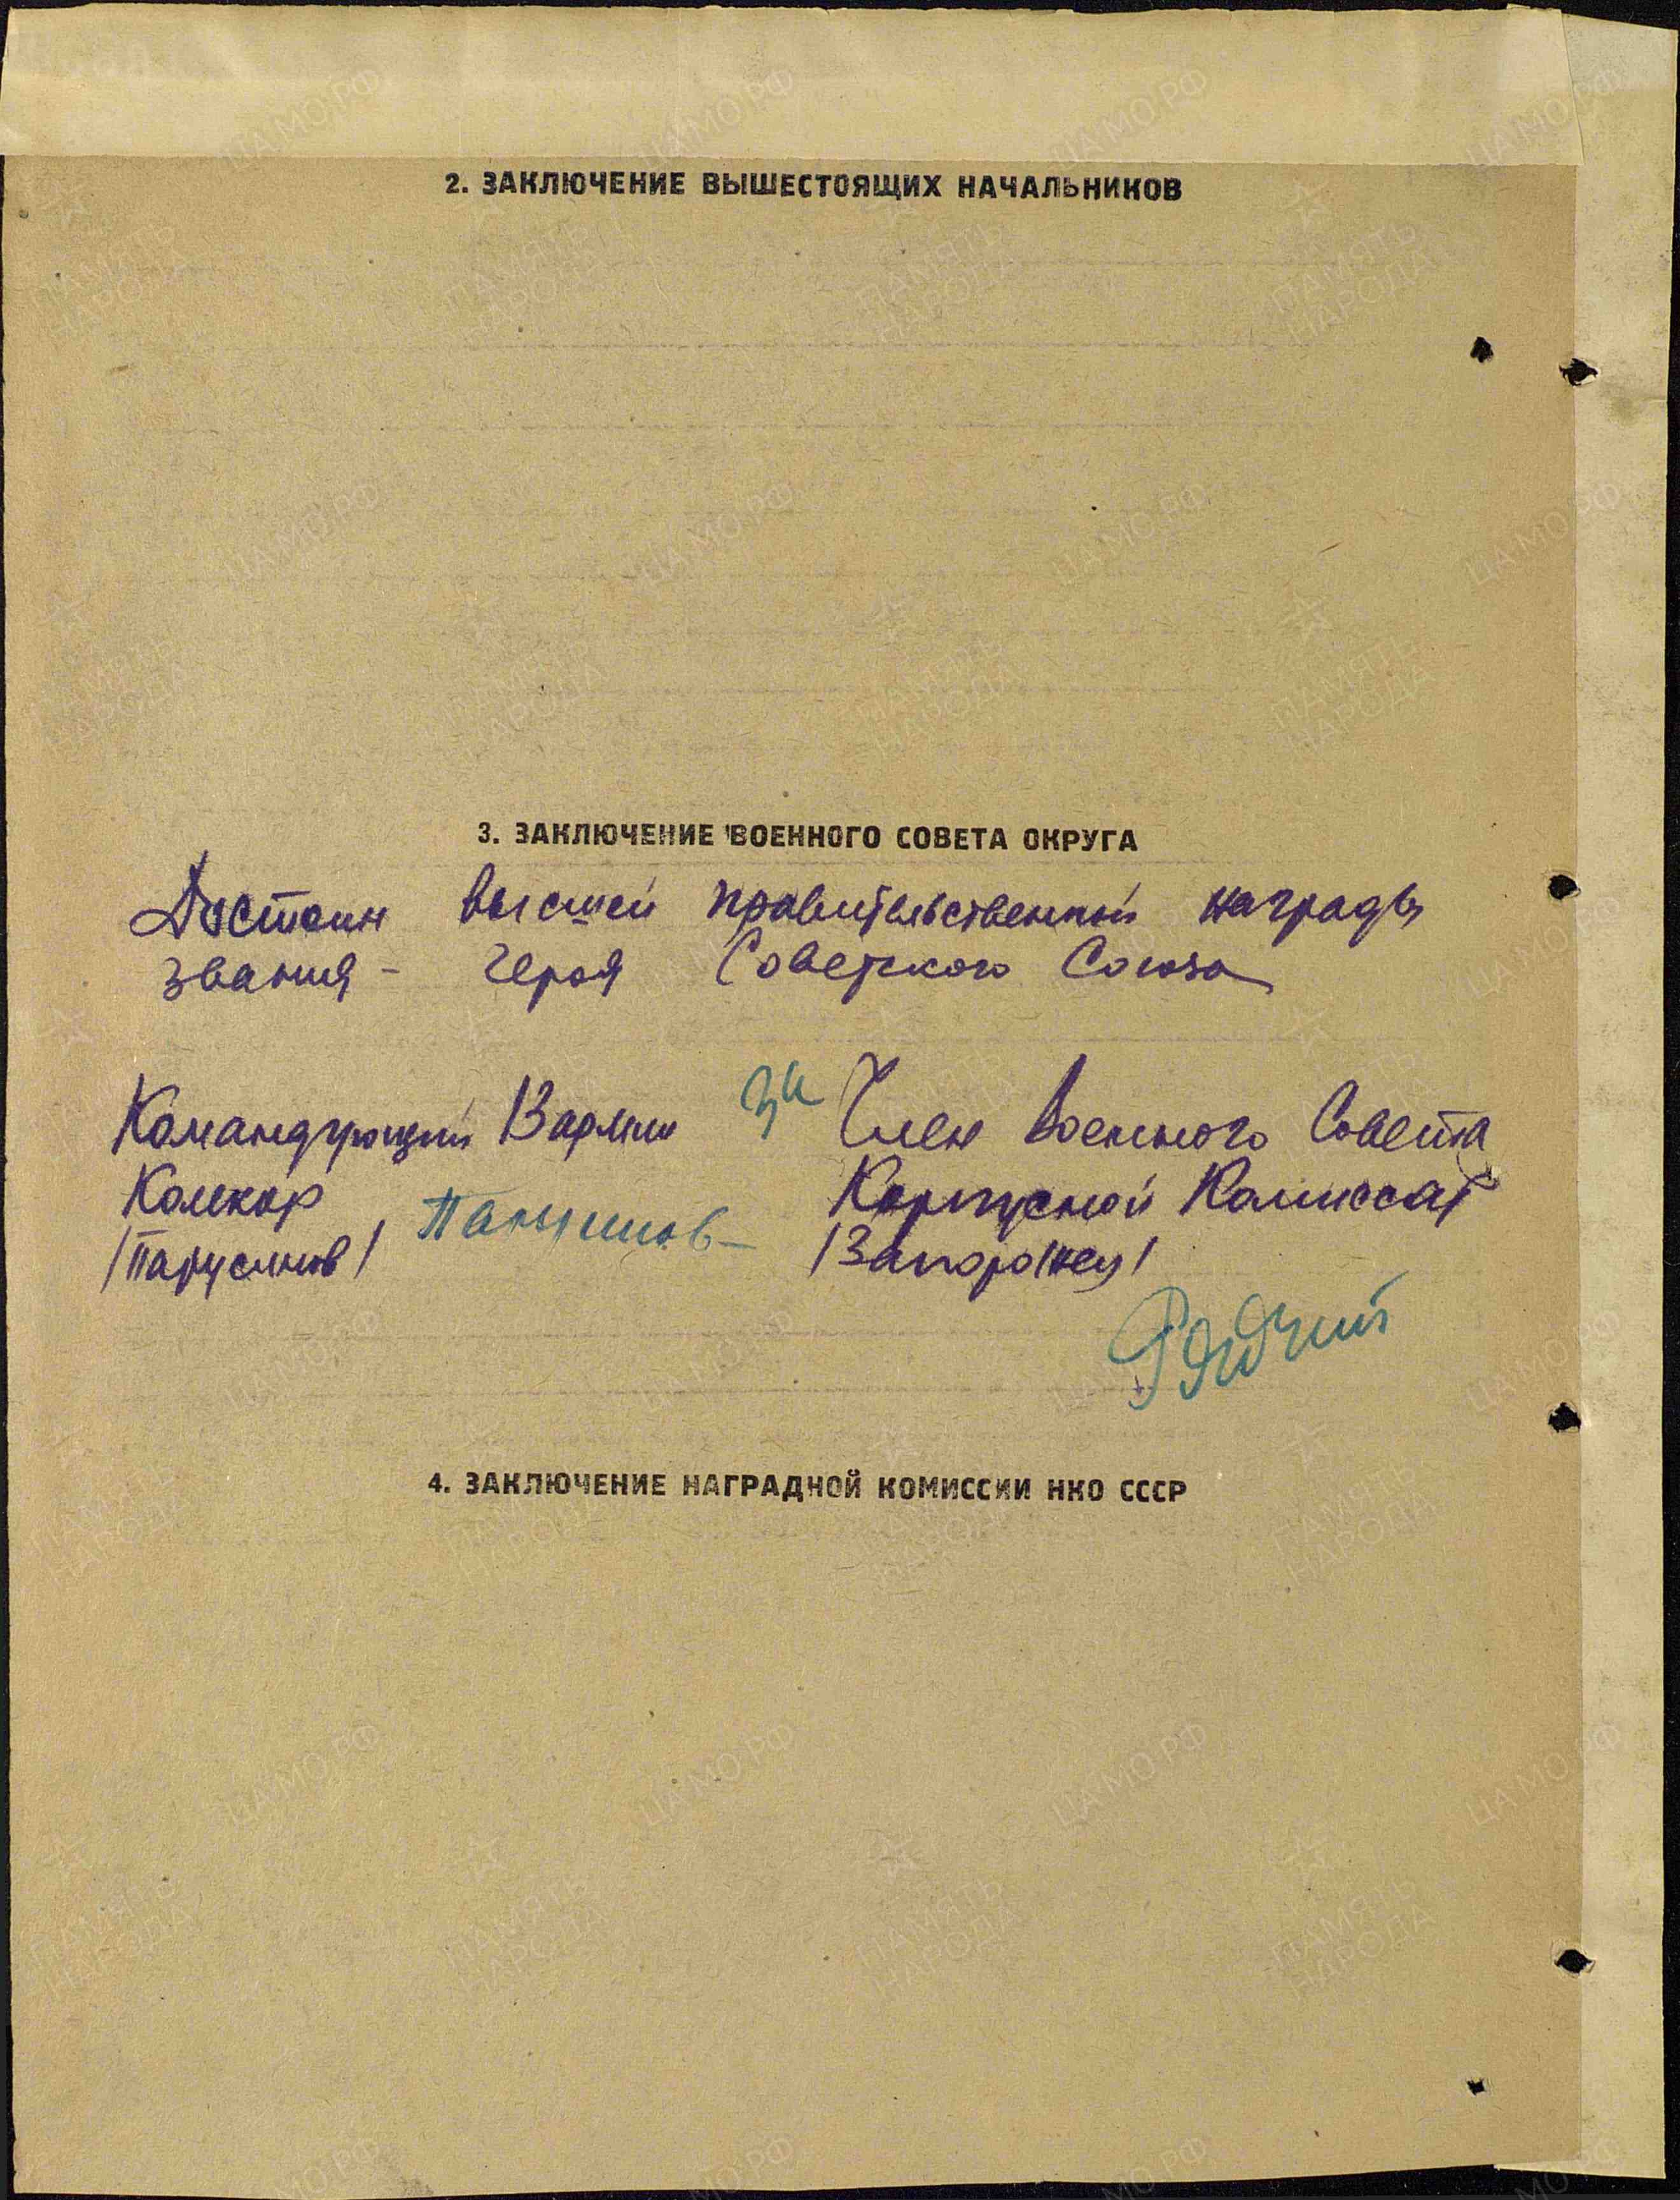 2. ЗАКЛЮЧЕНИЕ ВЫШЕСТОЯЩИХ НАЧАЛЬНИКОВ
3. ЗАКЛЮЧЕНИЕ ВОЕННОГО СОВЕТА ОКРУГА
Достоин высшей правительственной награды
звания - Героя Советского Союза
Командующий 13 армии за Член Военного Совета
Комкор Корпусной Комиссар
/Парусинов/ Парусинов /Запорожец/
4. ЗАКЛЮЧЕНИЕ НАГРАДНОЙ КОМИССИИ НКО СССР
ПАМЯТЬ НАРОДА
ЦАМО.РФ